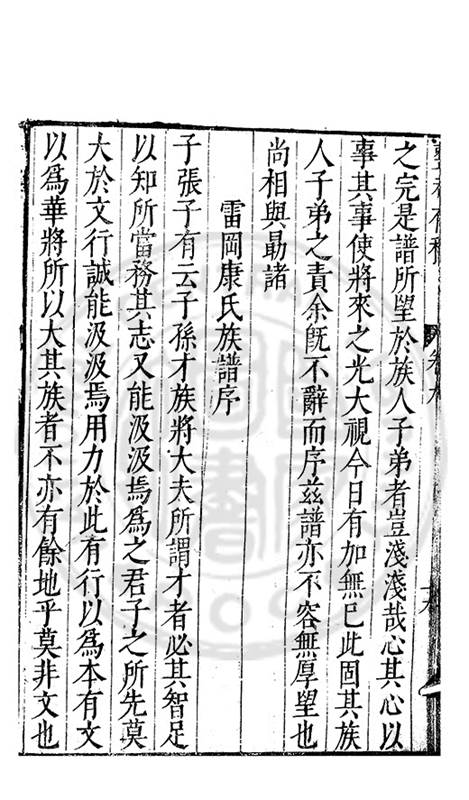 之完是譜所望於族人子弟者豈淺淺哉心其心以
事其事使將來之光大視今日有加無已此固其族
人子弟之責余旣不辭而序兹譜亦不容無厚望也
尚相與勗諸
雷岡康氏族譜序
子張子有云子孫才族將大夫所謂才者必其智足
以知所當務其志又能汲汲焉爲之君子之所先莫
大於文行誠能汲汲焉用力於此有行以爲本有文
以爲華將所以大其族者不亦有餘地乎莫非文也